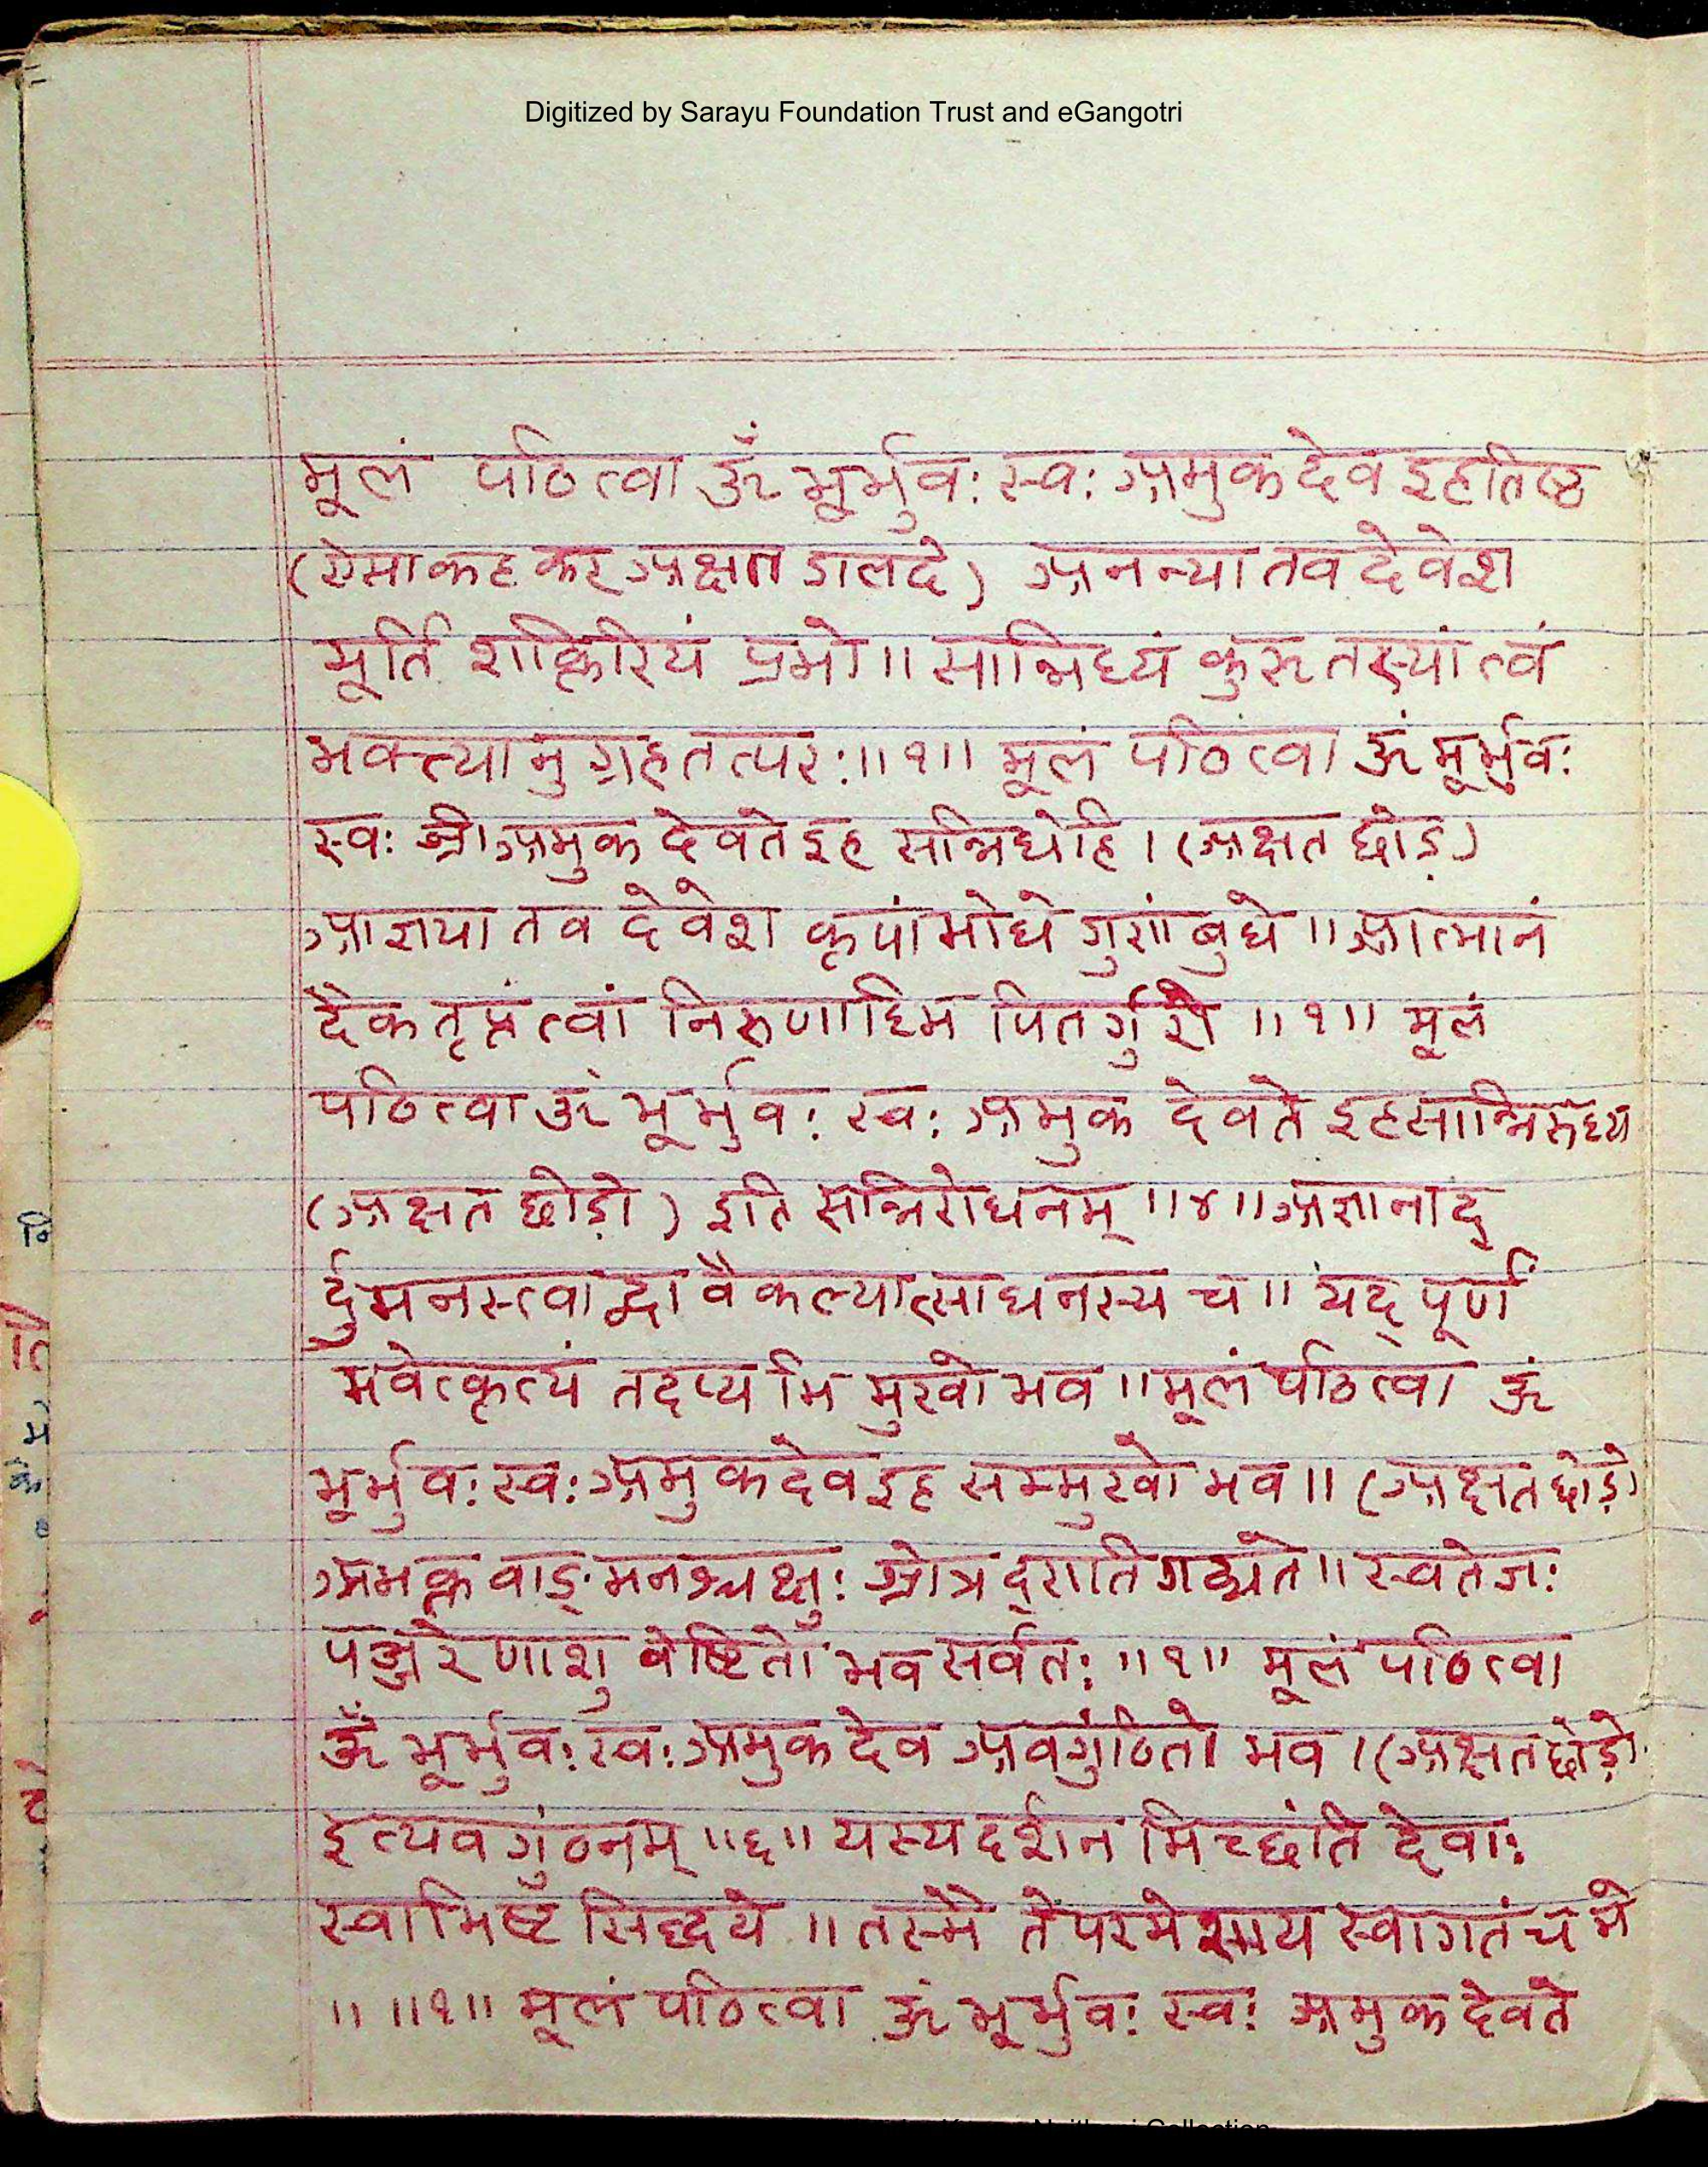 Digitized by Sarayu Foundation Trust and eGangotri
मूलं पठित्वा ॐ भूर्भुवः स्वः अमुक देव इहतिष्ठ
(ऐसा कह कर अक्षत डालदे) अनन्या तव देवेश
मूर्ति शक्तिरियं प्रभो॥ सान्निध्यं कुरु तस्यां त्वं
भक्त्यानुग्रहतत्परः॥१॥ मूलं पठित्वा ॐ भूर्भुवः
स्वः श्री अमुक देवते इह सन्निधेहि। (अक्षत छोड़)
आज्ञया तव देवेश कृपांभोधे गुणांबुधे॥ आत्मानं
दैक तृप्तं त्वां निरुणाध्मि पितर्गुरो ॥१॥ मूलं
पठित्वा ॐ भूर्भुवः स्वः अमुक देवते इहसान्निरुध्य
(अक्षत छोड़ो) इति सन्निरोधनम् ॥४॥ अज्ञानाद्
र्दुमनस्त्वाद्वा वैकल्यात्साधनस्य च॥ यद् पूर्णं
भवेत्कृत्यं तदप्यभिमुखो भव॥ मूलं पठित्वा ॐ
भूर्भुवः स्वः अमुक देव इह सम्मुखो भव॥ (अक्षत छोड़ो
अभक्त वाङ्मनश्चक्षुः श्रोत्र दूरातिगद्यते॥ स्वतेजः
पञ्जरेणाशु वेष्टितो भव सर्वतः ॥१॥ मूलं पठित्वा
ॐ भूर्भुवः स्वः अमुक देव अवगुंठितो भव। (अक्षत छोड़ो
इत्यवगुंठनम् ॥६॥ यस्य दर्शन मिच्छंति देवाः
स्वाभिष्ट सिद्धये ॥ तस्मै ते परमेशाय स्वागतं च मे
॥ ॥१॥ मूलं पठित्वा ॐ भूर्भुवः स्वः अमुक देवते